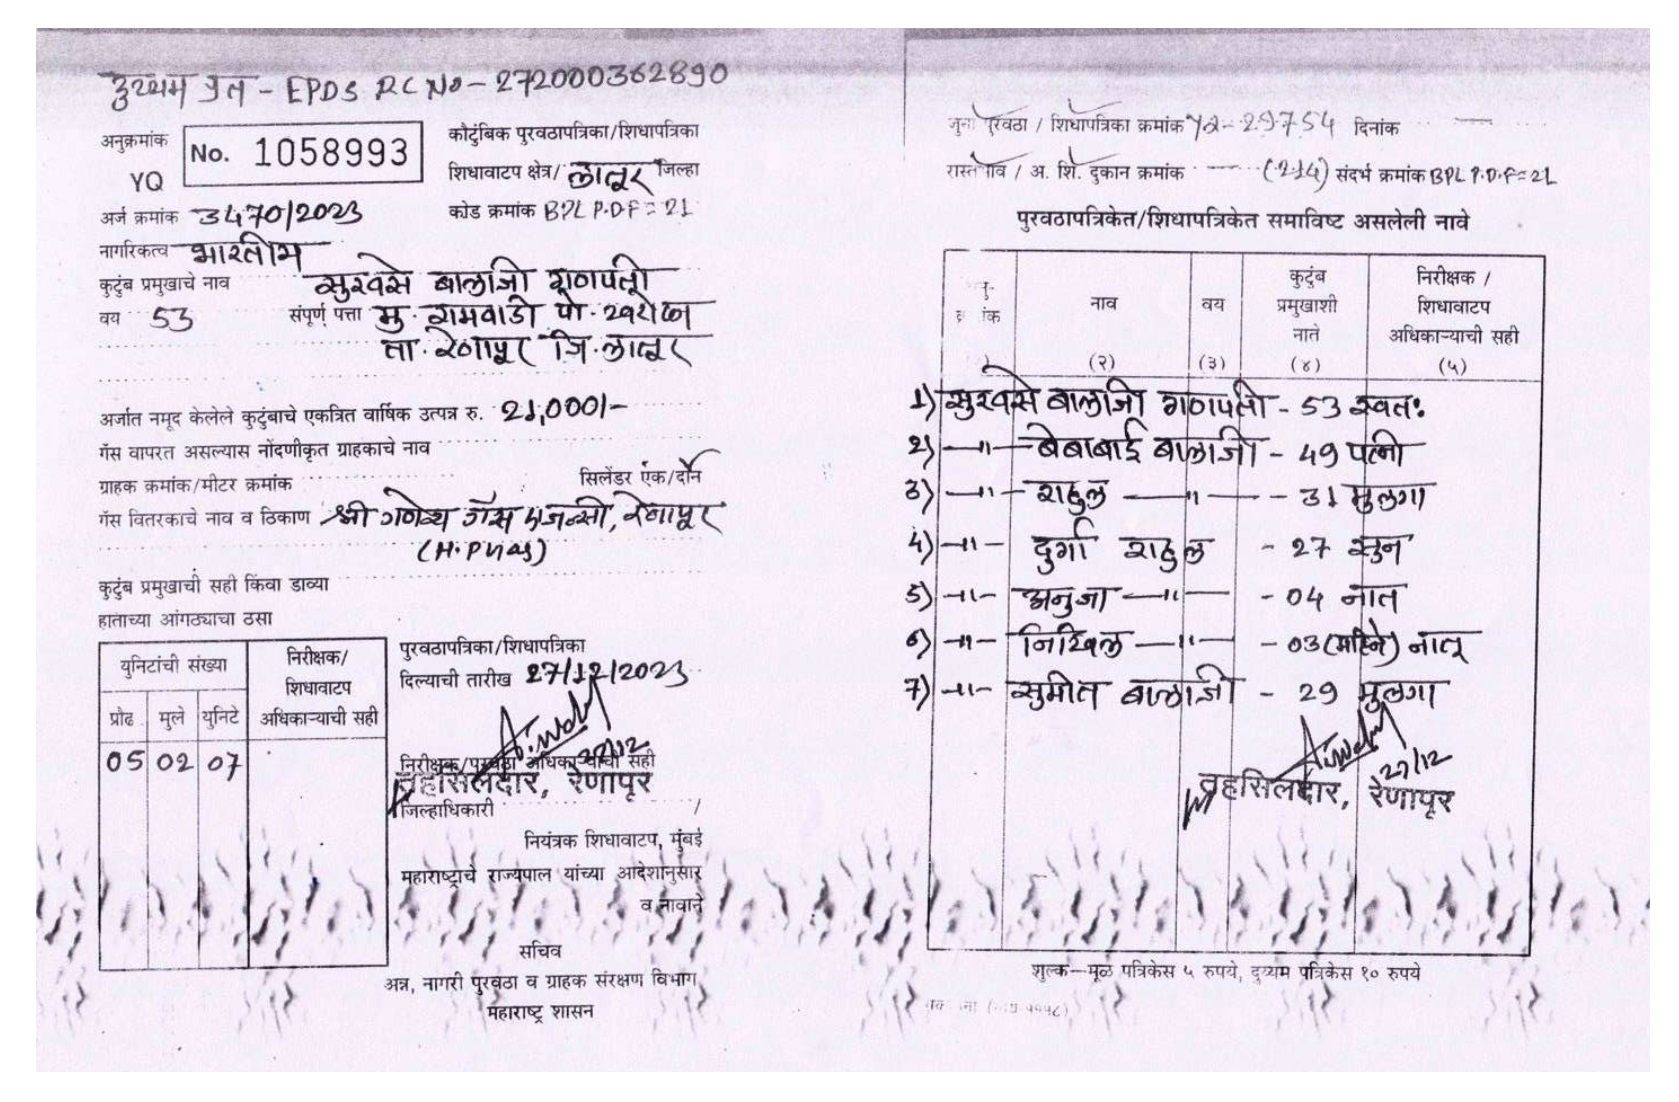 दुय्यम प्रत - EPDS RC No - 272000362890
अनुक्रमांक
YQ
No. 1058993
कौटुंबिक पुरवठापत्रिका/शिधापत्रिका
शिधावाटप क्षेत्र/ लातूर जिल्हा
कोड क्रमांक BPL P.D.F = 21
अर्ज क्रमांक 3470/2023
नागरिकत्व भारतीय
कुटुंब प्रमुखाचे नाव सुरवसे बालाजी गणपती
वय 53 संपूर्ण पत्ता मु. रामवाडी पो. खरोळा
ता. रेणापूर जि. लातूर
अर्जात नमूद केलेले कुटुंबाचे एकत्रित वार्षिक उत्पन्न रु. 21,000/-
गॅस वापरत असल्यास नोंदणीकृत ग्राहकाचे नाव
ग्राहक क्रमांक/मीटर क्रमांक सिलेंडर एक/दोन
गॅस वितरकाचे नाव व ठिकाण श्री गणेश गॅस एजन्सी, रेणापूर
(H.P. Gas)
कुटुंब प्रमुखाची सही किंवा डाव्या
हाताच्या आंगठ्याचा ठसा
युनिटांची संख्या
निरीक्षक/
शिधावाटप
अधिकाऱ्याची सही
प्रौढ मुले युनिटे
05 02 07
पुरवठापत्रिका/शिधापत्रिका
दिल्याची तारीख 27/12/2023
27/12
निरीक्षक/पुरवठा अधिकाऱ्याची सही
तहसिलदार, रेणापूर
जिल्हाधिकारी
नियंत्रक शिधावाटप, मुंबई
महाराष्ट्राचे राज्यपाल यांच्या आदेशानुसार
व नावाने
सचिव
अन्न, नागरी पुरवठा व ग्राहक संरक्षण विभाग
महाराष्ट्र शासन
जुना पुरवठा / शिधापत्रिका क्रमांक YQ-29754 दिनांक
रास्तभाव / अ. शि. दुकान क्रमांक (214) संदर्भ क्रमांक BPL P.D.F=21
पुरवठापत्रिकेत/शिधापत्रिकेत समाविष्ट असलेली नावे
नाव
वय
कुटुंब
प्रमुखाशी
नाते
निरीक्षक /
शिधावाटप
अधिकाऱ्याची सही
(२) (३) (४) (५)
1) सुरवसे बालाजी गणपती - 53 स्वतः
2) —"— बेबाबाई बालाजी - 49 पत्नी
3) —"— राहुल —"— - 31 मुलगा
4) —"— दुर्गा राहुल - 27 सुन
5) —"— अनुजा —"— - 04 नात
6) —"— निखिल —"— - 03 (महिने) नातू
7) —"— सुमीत बालाजी - 29 मुलगा
27/12
तहसिलदार, रेणापूर
शुल्क—मूळ पत्रिकेस ५ रुपये, दुय्यम पत्रिकेस १० रुपये